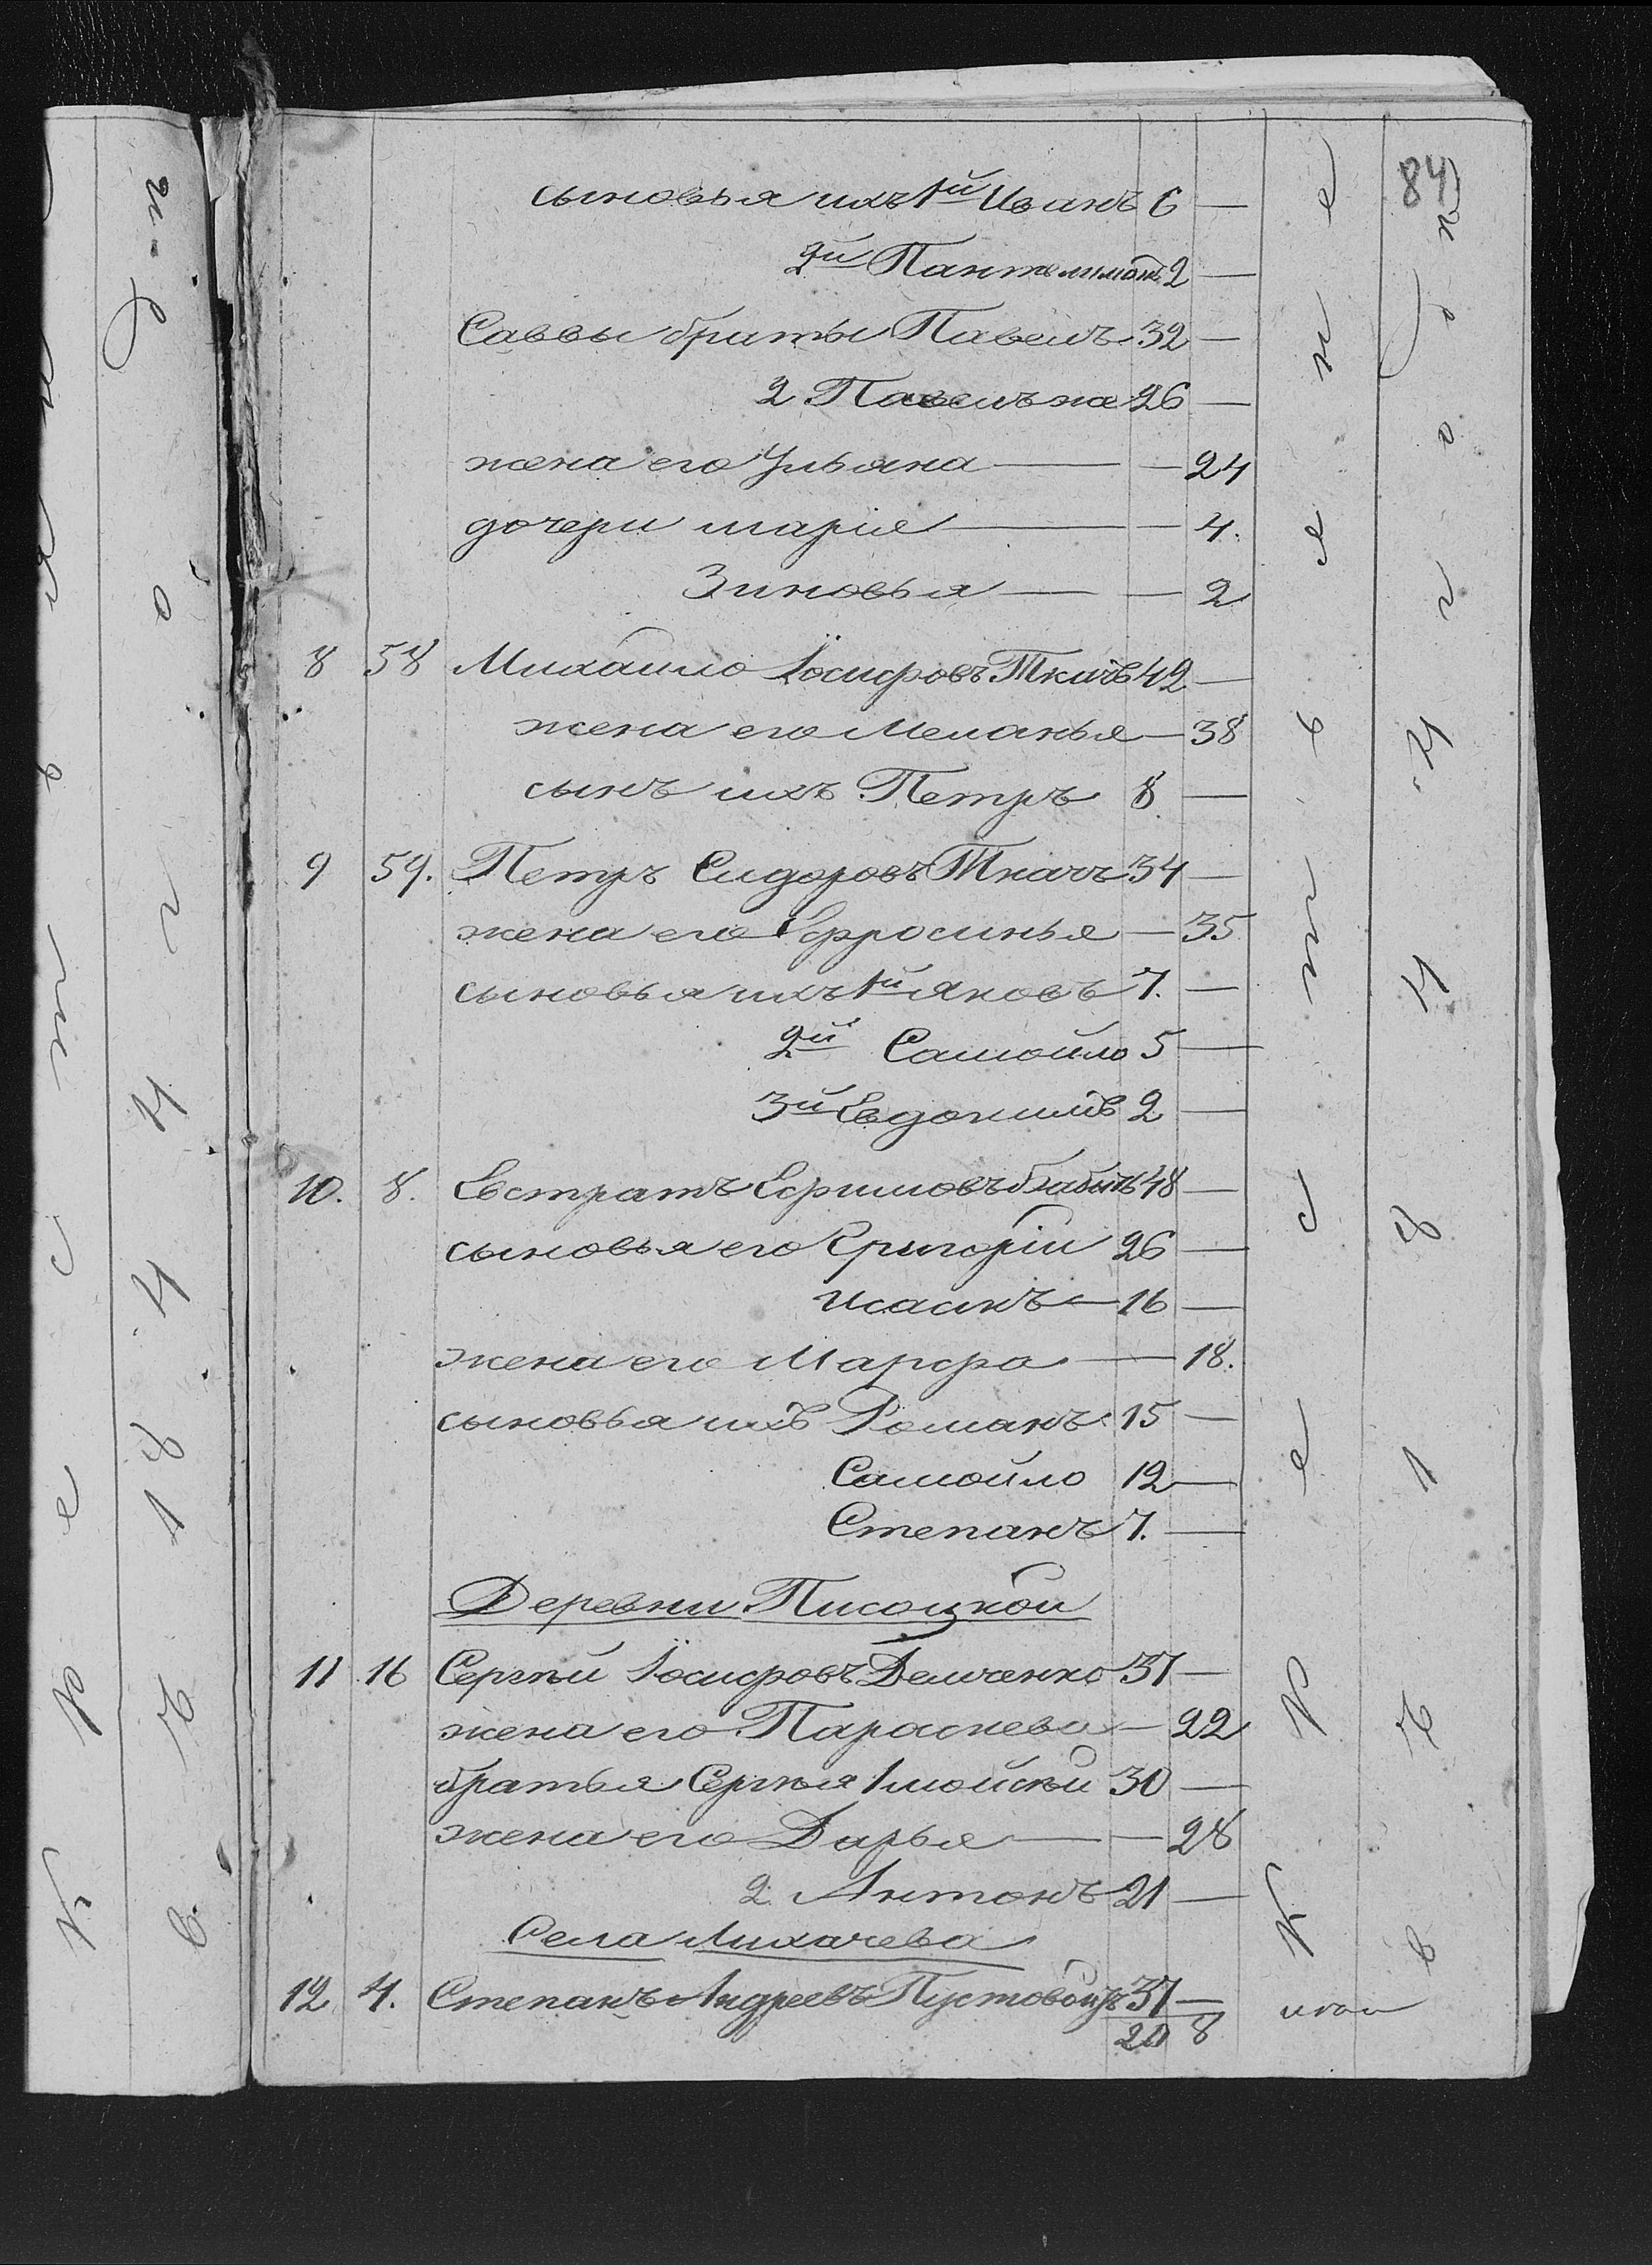 84
сыновья ихъ 1й Иванъ 6 —
2й Пантелимонъ 2 —
Саввы братья Павелъ 32 —
2 Павелъ же 26 —
жена его Ульяна — — 24
дочери Марiя — — 4.
Зиновья — — 2
8 58 Михайло Іосифовъ Ткачъ 42 —
жена его Меланья — 38
сынъ ихъ Петръ 8 —
9 59. Петръ Сидоровъ Ткачъ 34 —
жена его Ефросинья — 35
сыновья ихъ 1й Яковъ 7. —
2й Самойло 5 —
3й Евдокимъ 2 —
10. 8. Евстратъ Ефимовъ 48 —
сыновья его Григорiй 26 —
Исаакъ — 16 —
жена его Марфа — 18.
сыновья ихъ Романъ 15 —
Самойло 12 —
Степанъ 7. —
Деревни Писоцкой
11 16 Сергѣй Іосифовъ Демченко 37 —
жена его Параскева — 22
братья Сергѣя 1 Мойсѣй 30 —
жена его Дарья — — 28
2 Антонъ 21 —
Села Лихачева
12 4. Степанъ Андреевъ Пустовойтъ 37 —
20 8
Крестьяне
въ 1844 году